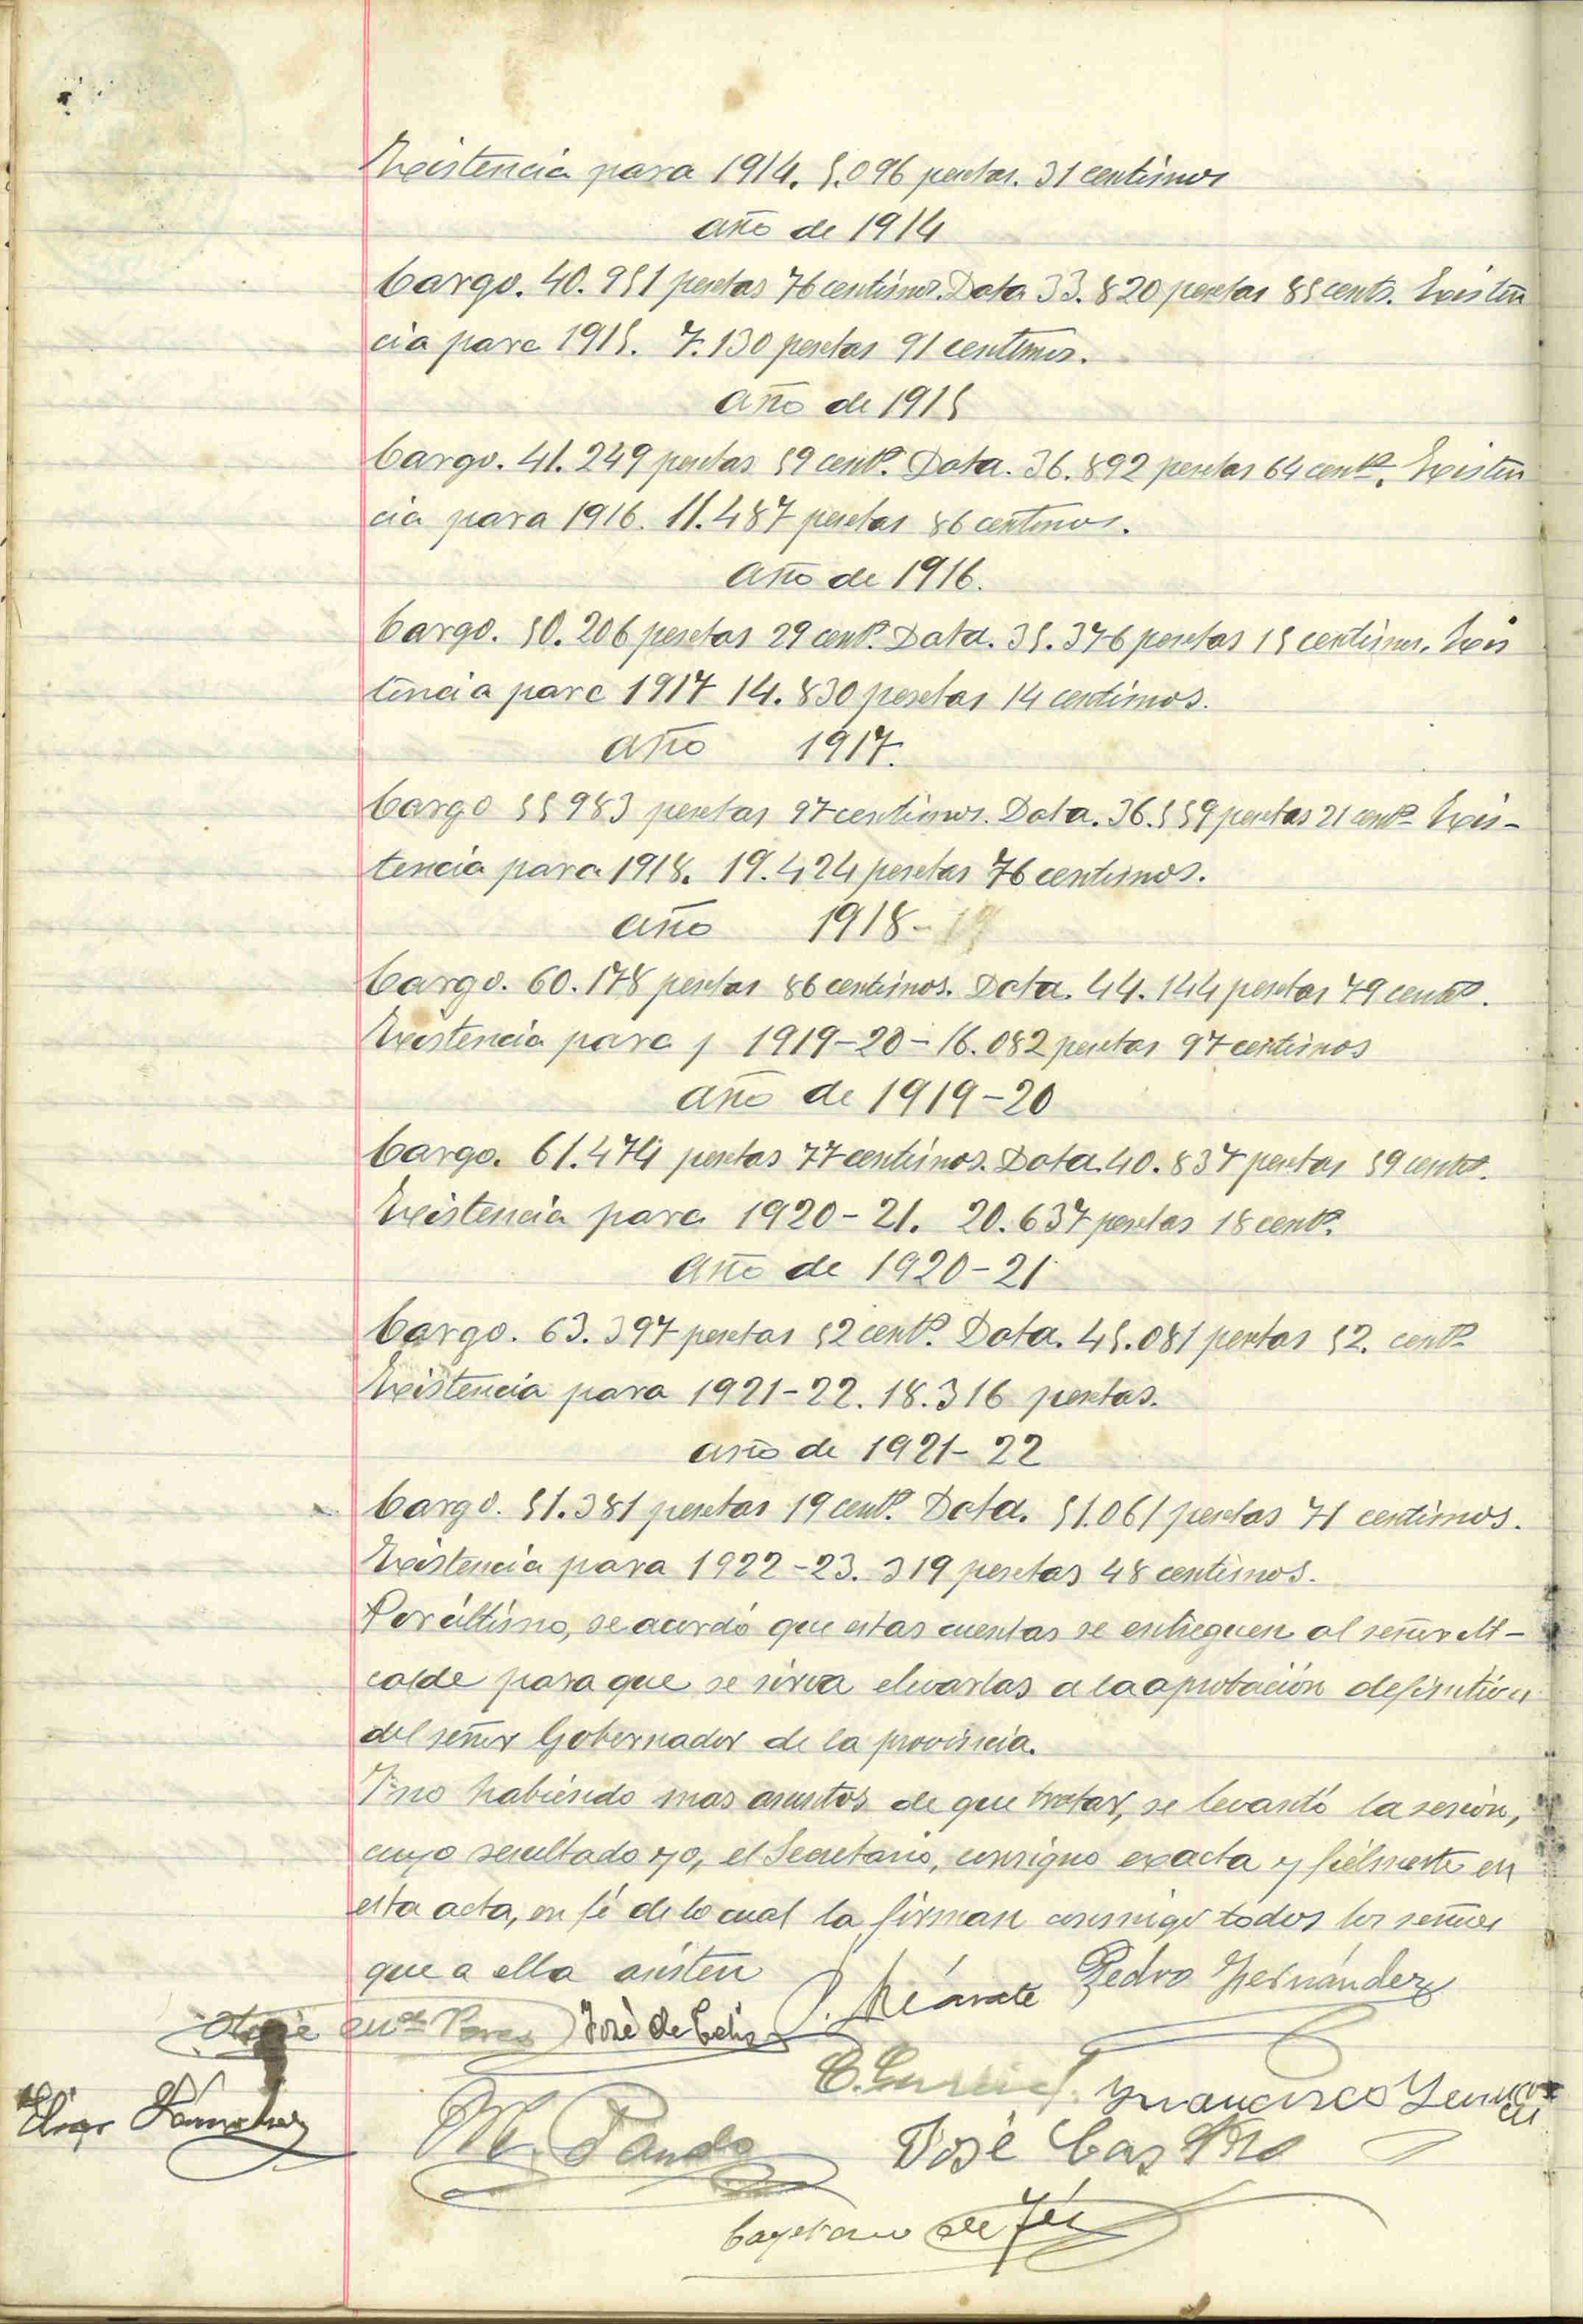 Existencia para 1914. 5.096 pesetas. 31 centimos
año de 1914
Cargo. 40.951 pesetas 76 centimos. Data 33.820 pesetas 85 cents. Existen
cia para 1915. 7.130 pesetas 91 centimos.
año de 1915
Cargo. 41.249 pesetas 59 centˢ. Data. 36.892 pesetas 64 centˢ. Existen
cia para 1916. 11.487 pesetas 86 centimos.
año de 1916.
Cargo. 50.206 pesetas 29 centˢ. Data. 35.376 pesetas 15 centimos. Exis
tencia para 1917 14.830 pesetas 14 centimos.
año 1917.
Cargo 55983 pesetas 97 centimos. Data. 36.559 pesetas 21 centˢ Exis-
tencia para 1918. 19.424 pesetas 76 centimos.
año 1918-19
Cargo. 60.178 pesetas 86 centimos. Data. 44.144 pesetas 79 centˢ.
Existencia para 1919-20- 16.082 pesetas 97 centimos
año de 1919-20
Cargo. 61.474 pesetas 77 centimos. Data. 40.837 pesetas 59 centˢ.
Existencia para 1920-21. 20.637 pesetas 18 centˢ.
año de 1920-21
Cargo. 63.397 pesetas 52 centˢ. Data. 45.081 pesetas 52. centˢ
Existencia para 1921-22. 18.316 pesetas.
año de 1921-22
Cargo. 51.381 pesetas 19 centˢ. Data. 51.061 pesetas 71 centimos.
Existencia para 1922-23. 319 pesetas 48 centimos.
Por último, se acordó que estas cuentas se entreguen al señor Al-
calde para que se sirva elevarlas a la aprobación definitiva
del señor Gobernador de la provincia.
Y no habiendo mas asuntos de que tratar, se levantó la sesión,
cuyo resultado yo, el Secretario, consigno exacta y fielmente en
esta acta, en fé de lo cual la firman conmigo todos los señores
que a ella asisten
Pedro Hernández
José de Celis
Francisco
M. Pando
José Castro
Cayetano